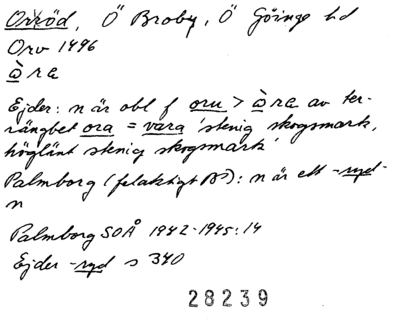 Orröd, Ö Broby, Ö Göinge hd
Orv 1496
ꭃ̀ra
Ejder: n är obl f oru > ꭃ̀ra av ter-
rängbet ora = vara 'stenig skogsmark,
höglänt stenig skogsmark'
Palmborg (felaktigt B³): n är ett -ryd-
n
Palmborg SOÅ 1942-1945:14
Ejder -ryd s 340
28239